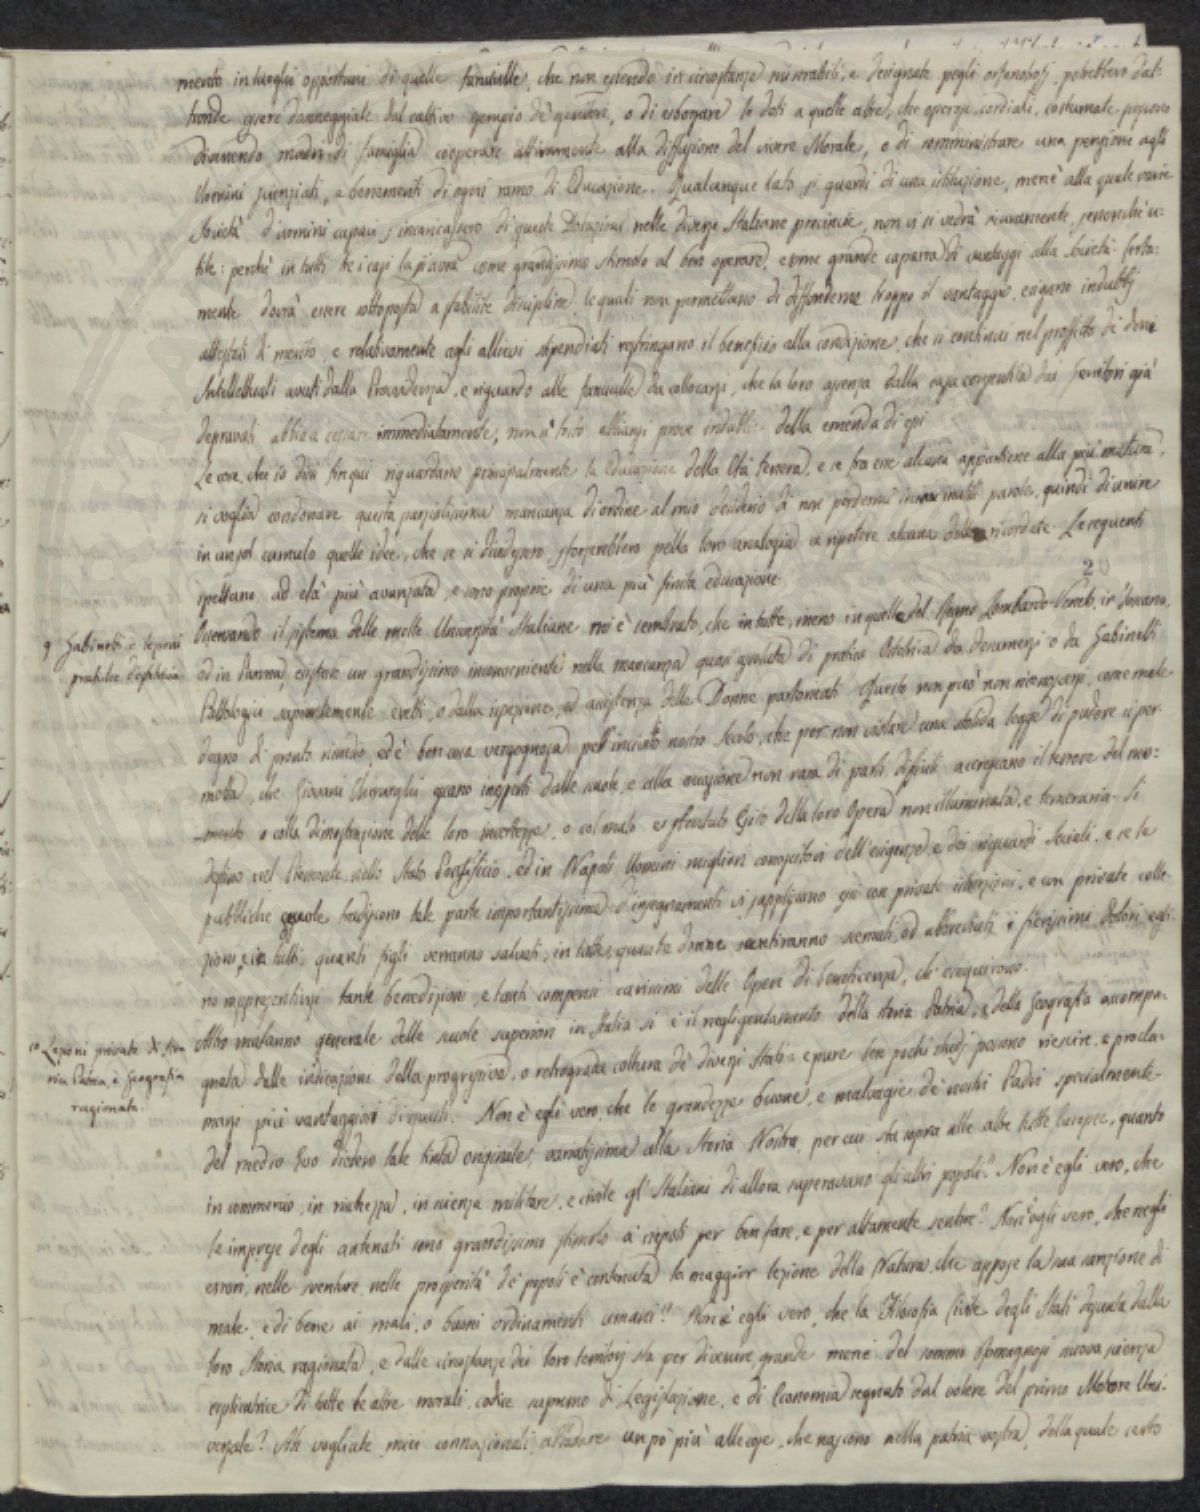 mento in luoghi opportuni di quelle fanciulle, che non essendo in circostanze miserabili, e designate pegli orfanotrofj, potrebbero d'al-
tronde essere danneggiate dal cattivo esempio de' genitori, o di esborsare le doti a quelle altre, che operose, cordiali, costumate possono
divenendo madri di famiglia cooperare attivamente alla diffusione del vivere Morale, o di somministrare una pensione agli
Uomini scienziati, e benemeriti di ogni ramo di Educazione. Qualunque lato si guardi di una istituzione, mercè alla quale varie
Società d'uomini capaci s'incaricassero di queste Dotazioni nelle diverse Italiane provincie, non vi si vedrà sicuramente, senonchè u-
tile: perchè in tutti tre i casi la si avrà come grandissimo stimolo al ben operare, e come grande caparra di vantaggi alla società: certa-
mente dovrà essere sottoposta a stabilite discipline, le quali non permettano di diffonderne troppo il vantaggio, esigano indubbj
attestati di merito, e relativamente agli allievi stipendiati restringano il beneficio alla condizione, che si continui nel profitto de' doni
Intellettuali avuti dalla Provvidenza, e riguardo alle fanciulle da collocarsi, che la loro assenza dalla casa conseguita dai Genitori già
depravati abbia a cessare immediatamente, non sì tosto abbiansi prove indubbie della emenda di essi.
Le cose, che io dissi finqui riguardano principalmente la Educazione della Età tenera, e se fra esse alcuna appartiene alla più matura,
si voglia condonare questa piccolissima mancanza di ordine al mio desiderio di non perdermi in inutili parole, quindi di unire
in un sol cumulo quelle idee, che se si dividessero, sforzerebbero pella loro analogia a ripetere alcuna delle ricordate. Le seguenti
spettano ad età più avanzata, e sono proprie di una più finita educazione.
20
9 Gabinetti e lezioni
pratiche d'ostetricia
Osservando il sistema delle molte Università Italiane mi è sembrato, che in tutte, meno in quelle del Regno Lombardo-Veneto, in Toscana,
ed in Parma, esistesse un grandissimo inconveniente nella mancanza quasi assoluta di pratica Ostetricia da desumersi o da Gabinetti
Patologici sapientemente eretti, o dalla ispezione, ed assistenza delle Donne partorienti. Questo non può non riconoscersi come male
degno di pronto rimedio, ed è ben cosa vergognosa pell'incivilito nostro Secolo, che per non violare una stolida legge di pudore si per-
metta, che Giovani Chirurghi escano inesperti dalle scuole, e alla occasione non rara di parti difficili accrescano il terrore del mo-
mento o colla dimostrazione delle loro incertezze, o col malo e sfortunato Esito della loro Opera non illuminata, e temeraria. Si
destino nel Piemonte, nello Stato Pontificio, ed in Napoli Uomini migliori conoscitori dell'esigenze, e dei riguardi sociali, e se le
pubbliche scuole tradiscono tale parte importantissima d'insegnamenti vi suppliscano essi con private istruzioni, e con private colle-
zioni, e in tutti quanti figli verranno salvati, in tutte quante donne sentiranno scemati, ed abbreviati i fierissimi dolori, egli-
no rappresentinsi tante benedizioni, e tanti compensi carissimi delle Opere di beneficenza, ch'eseguirono.
10 Lezioni private di Sto-
ria Patria, e Geografia
ragionata.
Altro malanno generale delle scuole superiori in Italia si è il negligentamento della storia Patria, e della Geografia accompa-
gnata dalle indicazioni della progressiva, o retrograda coltura de' diversi Stati: eppure ben pochi studj possono riescire, e procla-
marsi più vantaggiosi di questi. Non è egli vero, che le grandezze buone, e malvagie de' nostri Padri specialmente
del medio Evo diedero tale tinta originale, variatissima alla Storia Nostra, per cui sta sopra alle altre tutte Europee, quanto
in commercio, in ricchezza, in scienza militare, e civile gl'Italiani di allora superavano gli altri popoli? Non è egli vero, che
le imprese degli antenati sono grandissimo stimolo a' nipoti per ben fare, e per altamente sentire? Non è egli vero, che negli
errori, nelle sventure, nelle prosperità de' popoli è contenuta la maggior lezione della Natura, che appose la sua sanzione di
male, e di bene ai mali, o buoni ordinamenti umani? Non è egli vero, che la Filosofia Civile degli Stati desunta dalla
loro Storia ragionata, e dalle circostanze dei loro territorj sta per divenire, grande mercè del sommo Romagnosi nuova scienza
esplicatrice di tutte le altre morali, codice supremo di Legislazione, e di Economia segnato dal volere del primo Motore Uni-
versale? Ah vogliate, miei connazionali, attudare un pò più alle cose, che nascono nella patria vostra, della quale certo